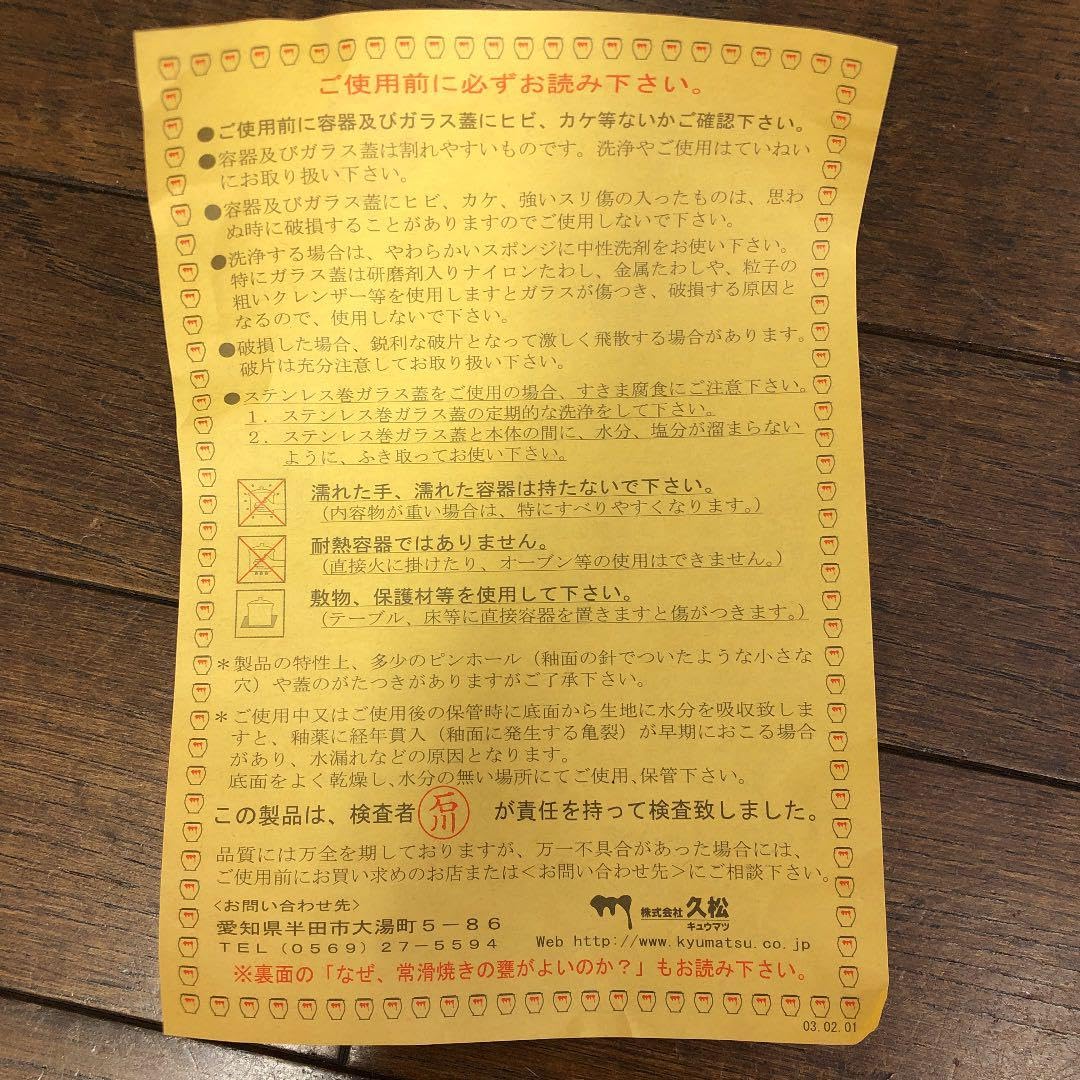 ご使用前に必ずお読み下さい。
●ご使用前に容器及びガラス蓋にヒビ、カケ等ないかご確認下さい。
●容器及びガラス蓋は割れやすいものです。洗浄やご使用はていねい
にお取り扱い下さい。
●容器及びガラス蓋にヒビ、カケ、強いスリ傷の入ったものは、思わ
ぬ時に破損することがありますのでご使用しないで下さい。
●洗浄する場合は、やわらかいスポンジに中性洗剤をお使い下さい。
特にガラス蓋は研磨剤入りナイロンたわし、金属たわしや、粒子の
粗いクレンザー等を使用しますとガラスが傷つき、破損する原因と
なるので、使用しないで下さい。
●破損した場合、鋭利な破片となって激しく飛散する場合があります。
破片は充分注意してお取り扱い下さい。
●ステンレス巻ガラス蓋をご使用の場合、すきま腐食にご注意下さい。
1．ステンレス巻ガラス蓋の定期的な洗浄をして下さい。
2．ステンレス巻ガラス蓋と本体の間に、水分、塩分が溜まらない
ように、ふき取ってお使い下さい。
濡れた手、濡れた容器は持たないで下さい。
（内容物が重い場合は、特にすべりやすくなります。）
耐熱容器ではありません。
（直接火に掛けたり、オーブン等の使用はできません。）
敷物、保護材等を使用して下さい。
（テーブル、床等に直接容器を置きますと傷がつきます。）
＊製品の特性上、多少のピンホール（釉面の針でついたような小さな
穴）や蓋のがたつきがありますがご了承下さい。
＊ご使用中又はご使用後の保管時に底面から生地に水分を吸収致しま
すと、釉薬に経年貫入（釉面に発生する亀裂）が早期におこる場合
があり、水漏れなどの原因となります。
底面をよく乾燥し、水分の無い場所にてご使用、保管下さい。
この製品は、検査者 石川 が責任を持って検査致しました。
品質には万全を期しておりますが、万一不具合があった場合には、
ご使用前にお買い求めのお店または＜お問い合わせ先＞にご相談下さい。
＜お問い合わせ先＞
愛知県半田市大湯町5－86
TEL（0569）27－5594
株式会社 久松
キュウマツ
Web http://www.kyumatsu.co.jp
※裏面の「なぜ、常滑焼きの甕がよいのか？」もお読み下さい。
03.02.01